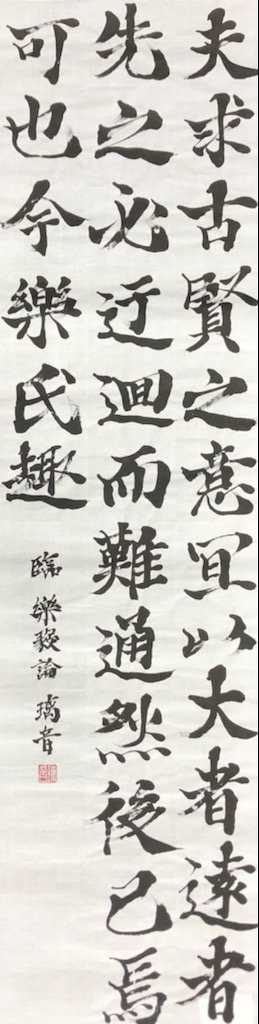 夫求古賢之意宜以大者遠者
先之必迂迴而難通然後已焉
可也今樂氏趣
臨 樂毅論 璃音